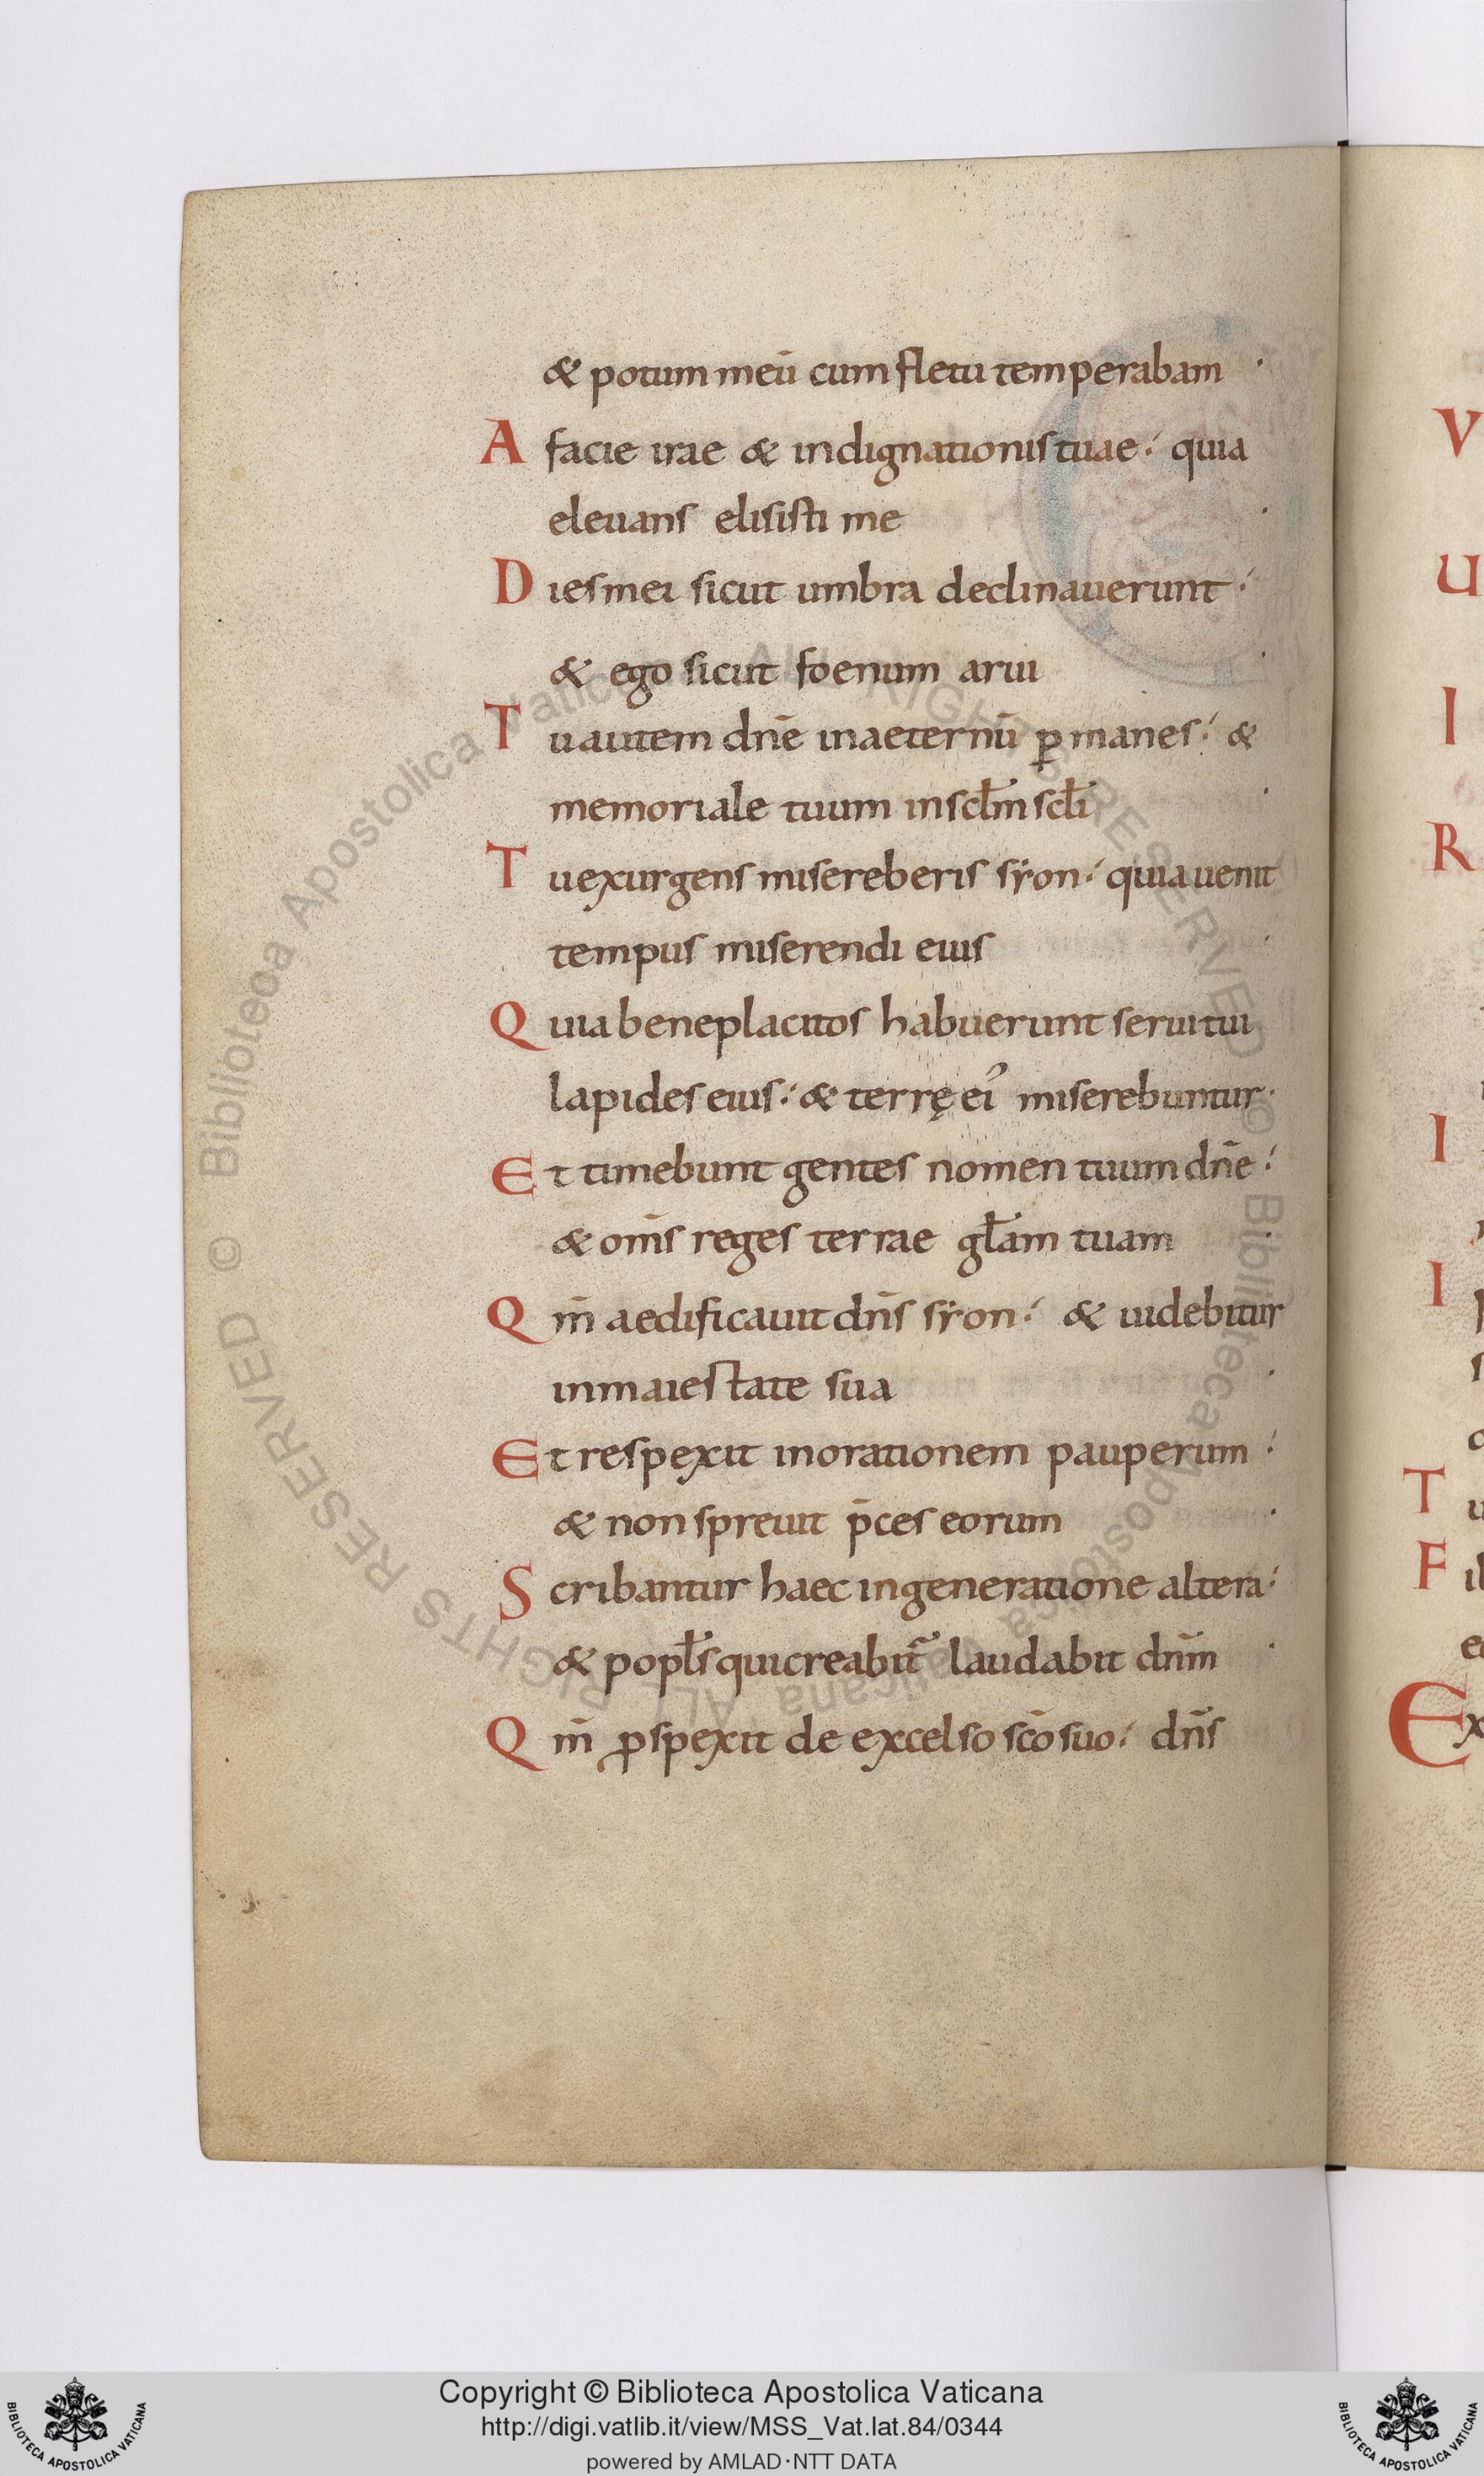 & potum meū cum fletu temperabam ·
A facie irae & indignationis tuae: quia
eleuans elisisti me ·
Dies mei sicut umbra declinauerunt:
& ego sicut foenum arui ·
Tu autem dn̄e in aeternū ꝑmanes: &
memoriale tuum in scl̄m scl̄i ·
Tu exurgens misereberis sẏon: quia uenit
tempus miserendi eius ·
Quia beneplacitos habuerunt serui tui
lapides eius: & terrę ei᾽ miserebuntur·
Et timebunt gentes nomen tuum dn̄e:
& om̄s reges terrae gl̄am tuam ·
Qm̄ aedificauit dn̄s sẏon: & uidebitur
in maiestate sua ·
Et respexit in orationem pauperum:
& non spreuit p̄ces eorum ·
Scribantur haec in generatione altera:
& popl̄s qui creabit᷑ laudabit dn̄m ·
Qm̄ ꝓspexit de excelso sc̄o suo: dn̄s
V
U
I
R
I
I
T u
F
Ex
© Biblioteca Apostolica Vaticana ALL RIGHTS RESERVED © Biblioteca Apostolica Vaticana ALL RIGHTS RESERVED
Copyright © Biblioteca Apostolica Vaticana
http://digi.vatlib.it/view/MSS_Vat.lat.84/0344
powered by AMLAD·NTT DATA
BIBLIOTECA APOSTOLICA VATICANA
BIBLIOTECA APOSTOLICA VATICANA